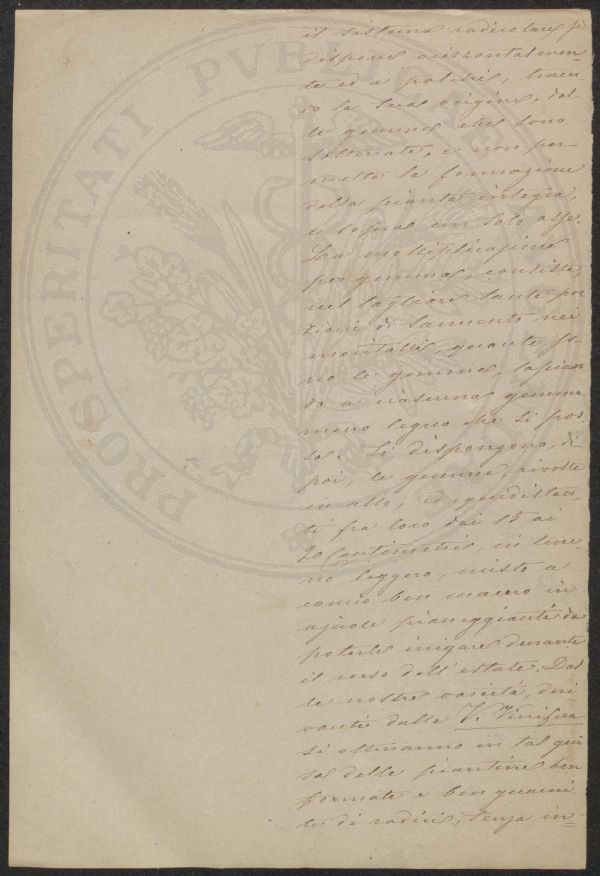 PROSPERITATI PVBLICAE
il sistema radicolare si
dispone orizzontalmen-
te ed a palchi, traen-
do la sua origine, dal-
le gemme che sono
sotterrate, e non per-
mette la formazione
della pianta integra,
e sopra un solo asse.
La moltiplicazione
per gemma, consiste,
nel tagliare tante por
zioni di sarmento nei
meritalli, quante so-
no le gemme, lascian
do a ciascuna gemma
meno legno che si pos-
sa. Si dispongono, di
poi, le gemme, rivolte
in alto, ed equidistan-
ti fra loro dai 15 ai
20 Centimetri, in terre-
no leggero, misto a
concio ben macero in
ajuole pianeggianti da
poterle irrigare durante
il corso dell'estate. Dal
le nostre varietà, deri
vanti dalla V. Vinifera
si otteranno in tal gui
sa delle piantine ben
formate e ben guarni
te di radici, senza in=